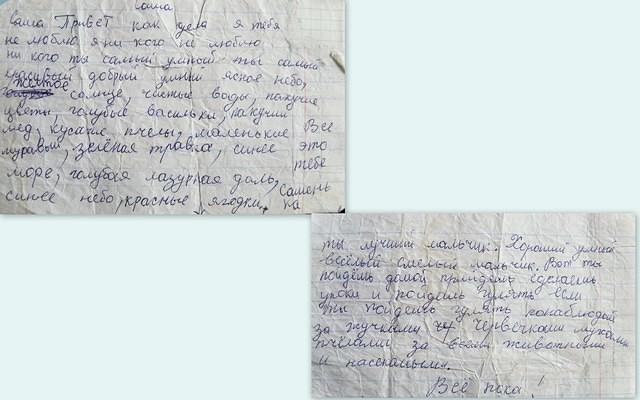 саша
саша Привет как дела я тебя
не люблю я ни кого не люблю
ни кого ты самый умной ты самый
красивый добрый умный ясное небо,
жёлтое солнце, чистые воды, пахучие
цветы, голубые васильки, пахучий
мёд, кусачие пчёлы, маленькие Всё
муравьи, зелёная травка, синее это
море, голубая лазурная даль, тебе
синее небо, красные ягодки. Сашень
ка
ты лучший мальчик. Хороший умный
весёлый смелый мальчик. Вот ты
пойдёшь домой прийдёшь сделаешь
уроки и пойдёшь гулять если
ты пойдёшь гулять понаблюдай
за жучками червечками мухами
пчёлами за всеми животными
и насекомыми.
Всё пока!